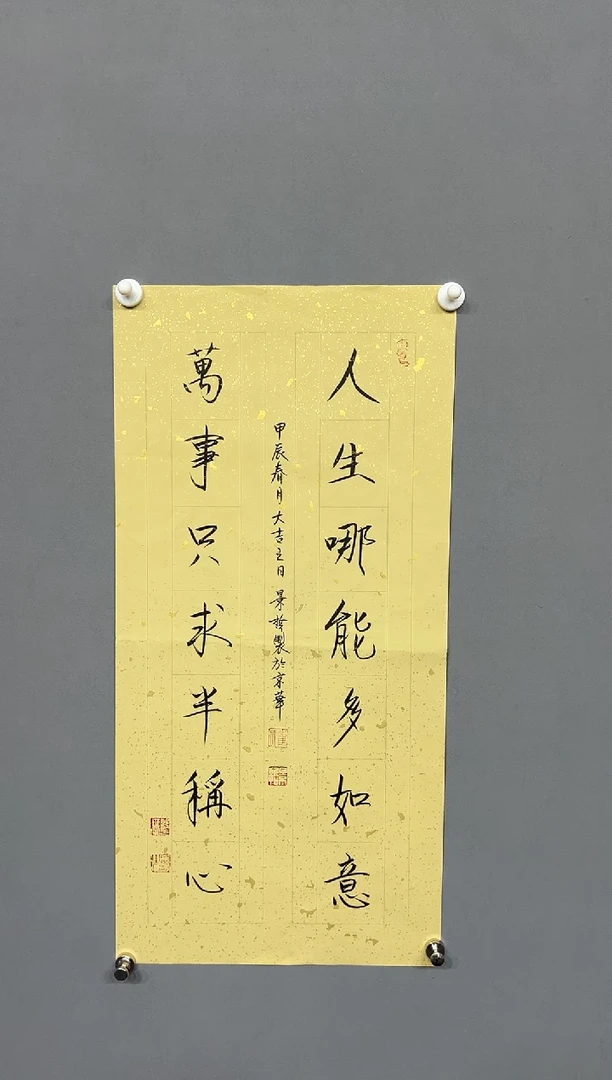 人生哪能多如意
甲辰春月大吉之日景峰製於京華
萬事只求半稱心